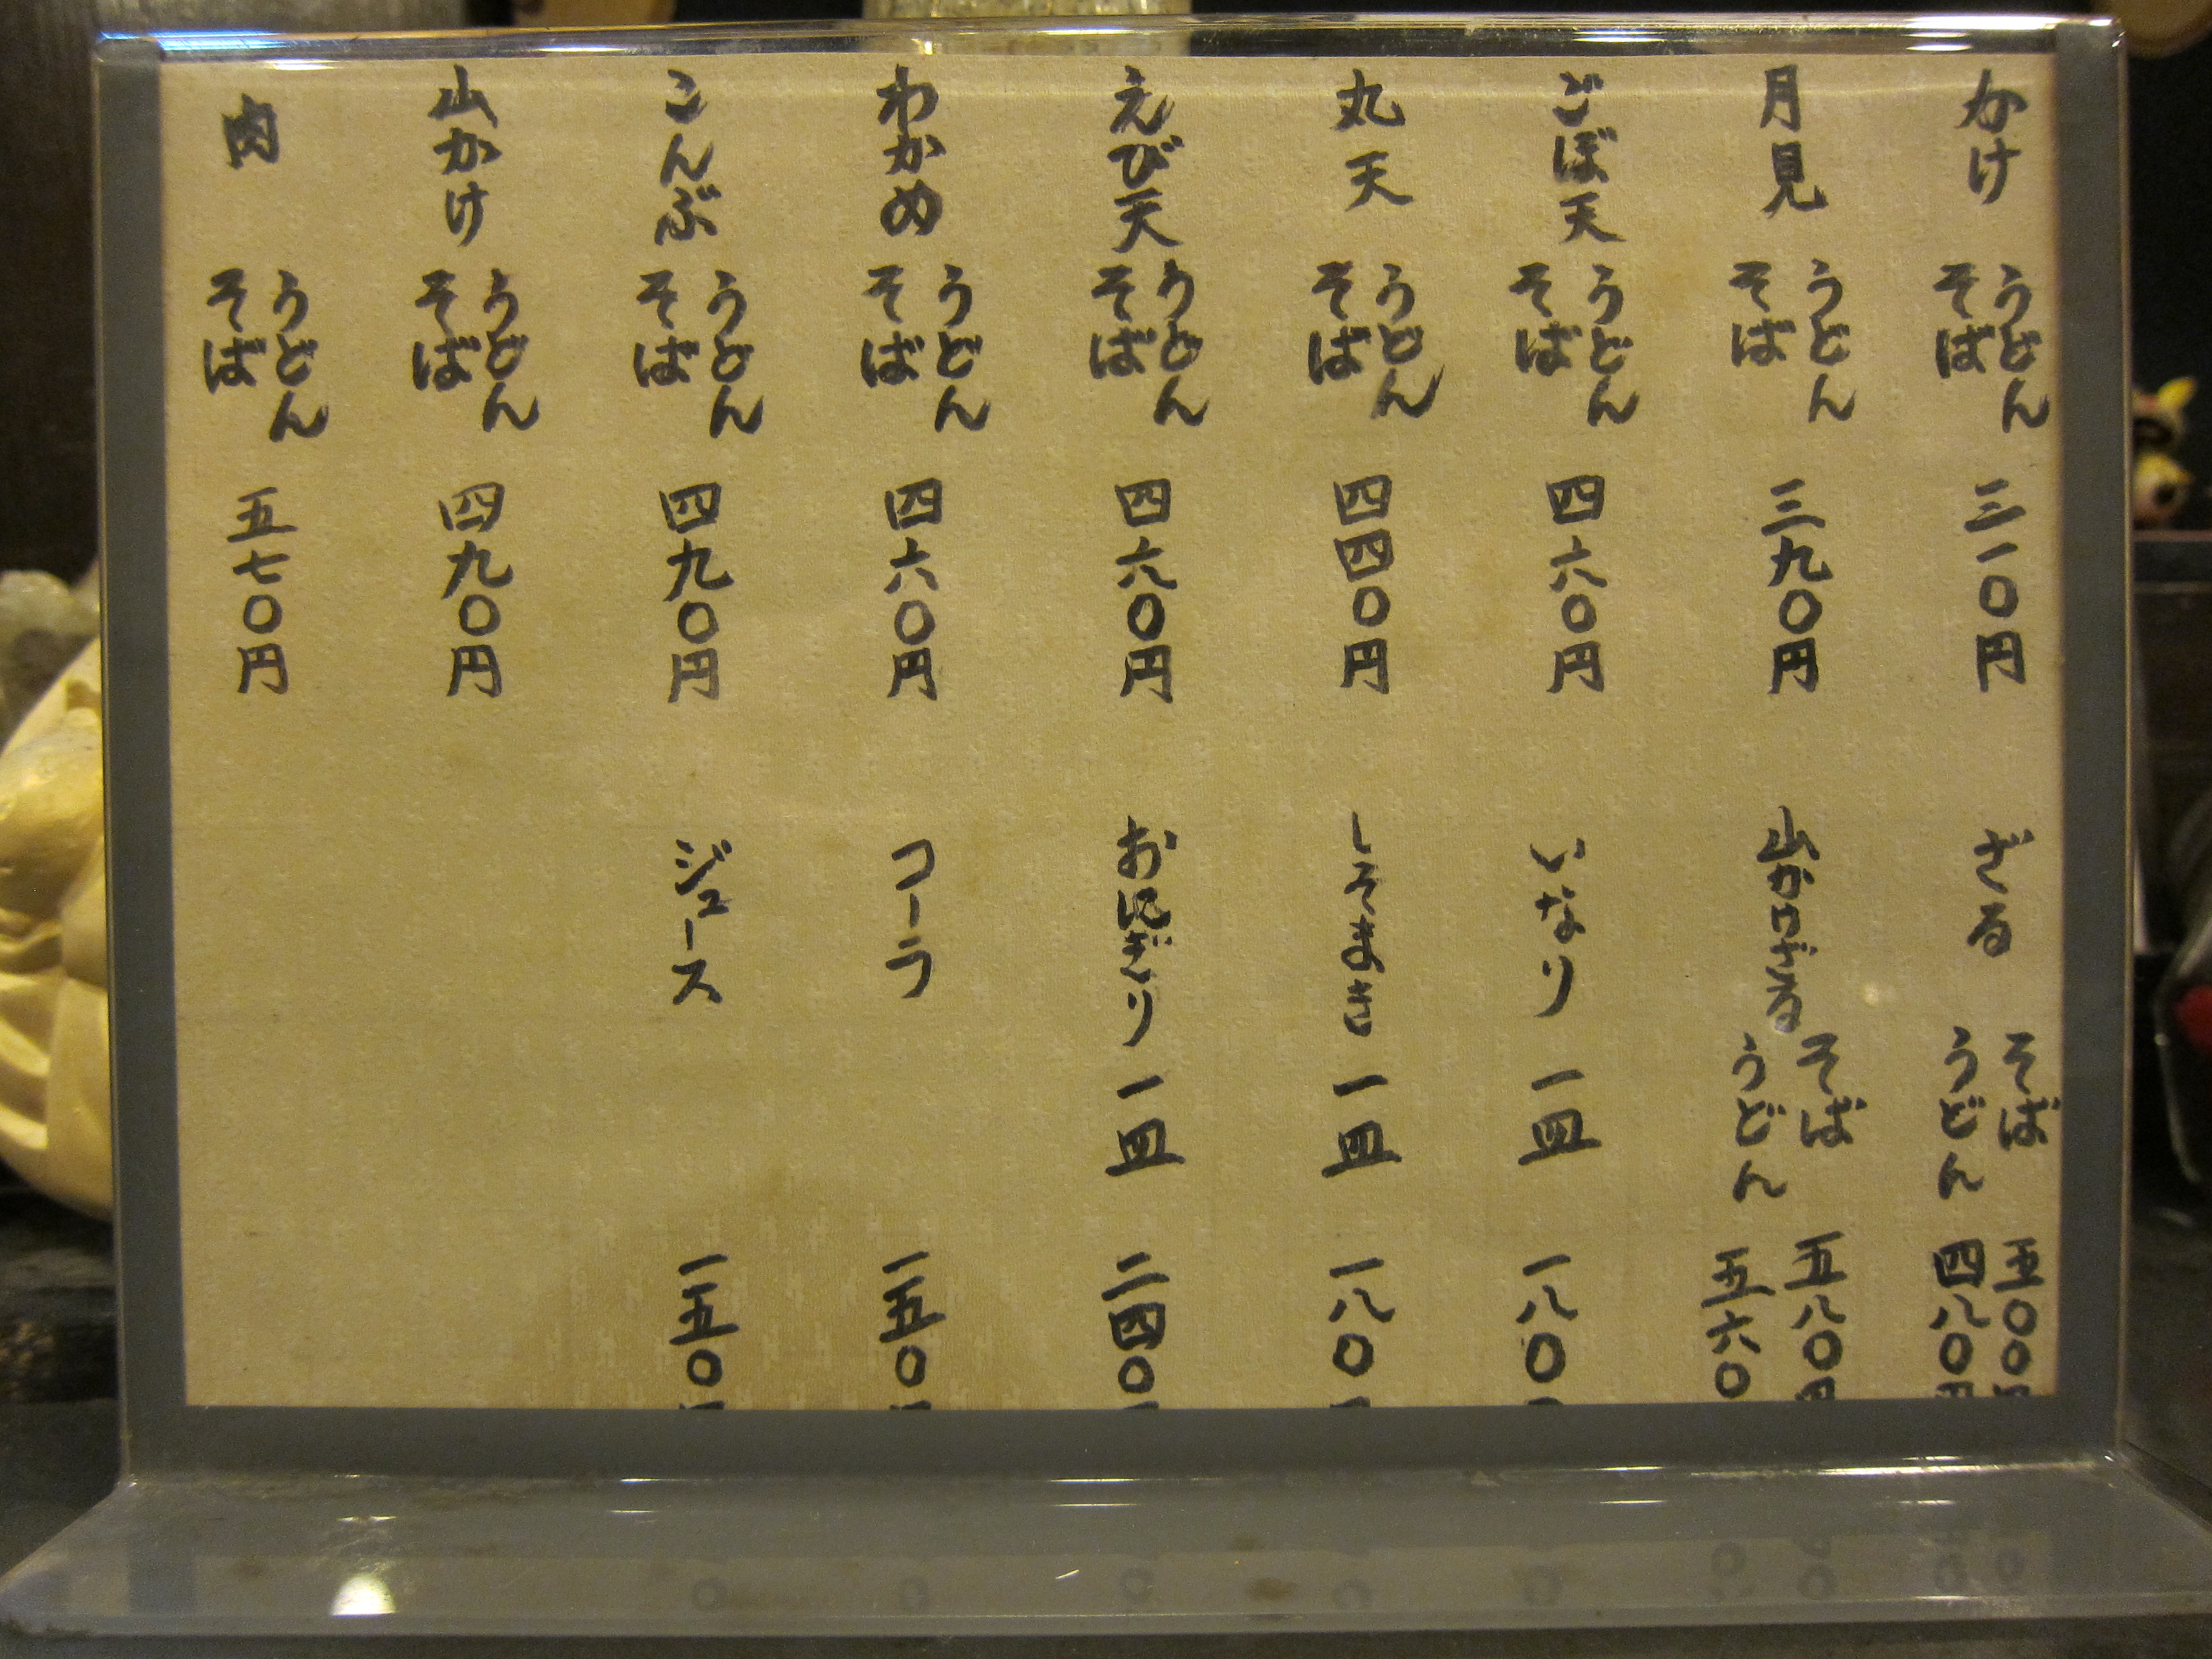 かけ うどん そば 三一〇円
月見 うどん そば 三九〇円
ごぼ天 うどん そば 四六〇円
丸天 うどん そば 四四〇円
えび天 うどん そば 四六〇円
わかめ うどん そば 四六〇円
こんぶ うどん そば 四九〇円
山かけ うどん そば 四九〇円
肉 うどん そば 五七〇円
ざる そば 五〇〇円
うどん 四八〇円
山かけざる そば 五八〇円
うどん 五六〇
いなり 一皿 一八〇
しそまき 一皿 一八〇
おにぎり 一皿 二四〇
コーラ 一五〇
ジュース 一五〇